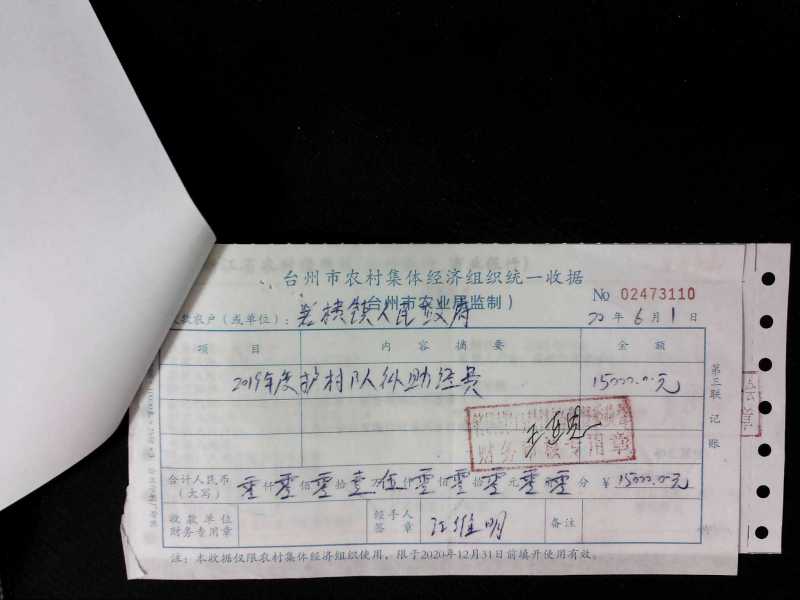 台州市农村集体经济组织统一收据
(台州市农业局监制)
No 02473110
款农户(或单位):
镇人民政府
20 年 6 月 1 日
项 目 内 容 摘 要 金 额
2019年度护村队补助经费 15000.00元
财务专用章
合计人民币
(大写) 零 仟 零 佰 零 拾 壹 万 伍 仟 零 佰 零 拾 零 元 零 角 零 分 ¥ 15000.00元
收款单位
财务专用章
经手人
签章
汪维明
备注
注:本收据仅限农村集体经济组织使用,限于2020年12月31日前填开使用有效。
第三联 记账